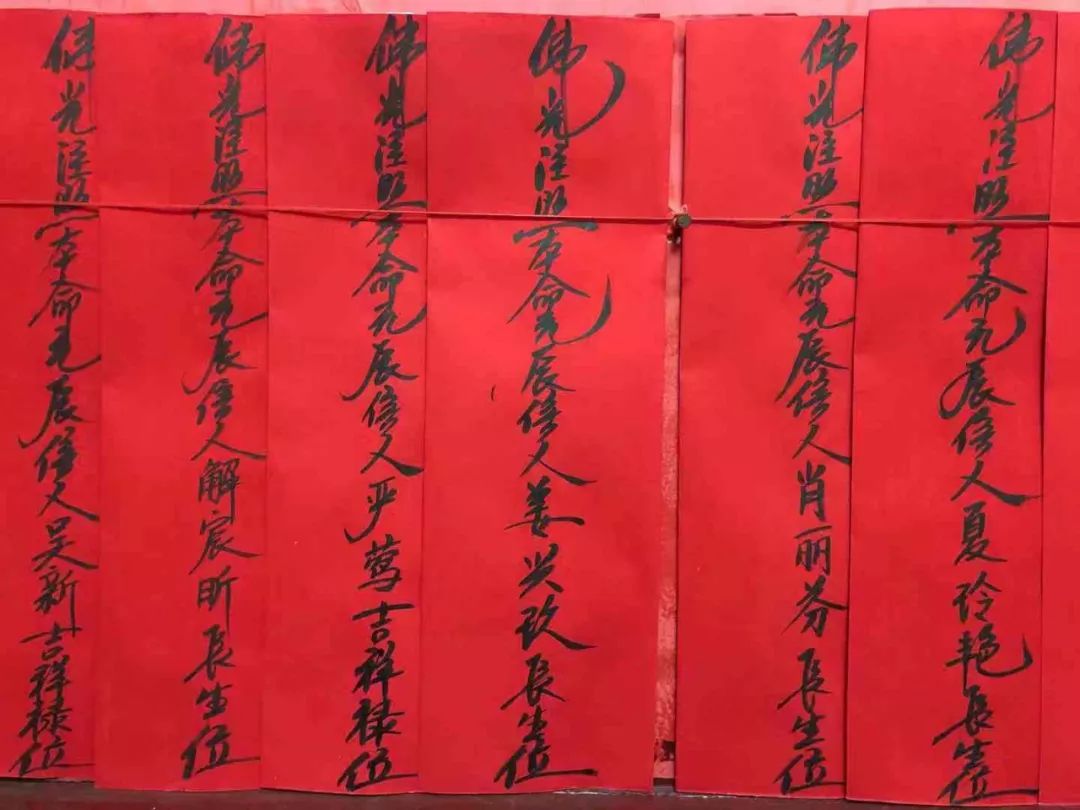 佛光注照本命元辰信人夏玲艳长生位
佛光注照本命元辰信人肖丽芬长生位
佛光注照本命元辰信人姜兴玖长生位
佛光注照本命元辰信人严莺吉祥禄位
佛光注照本命元辰信人解宸昕长生位
佛光注照本命元辰信人吴新吉祥禄位